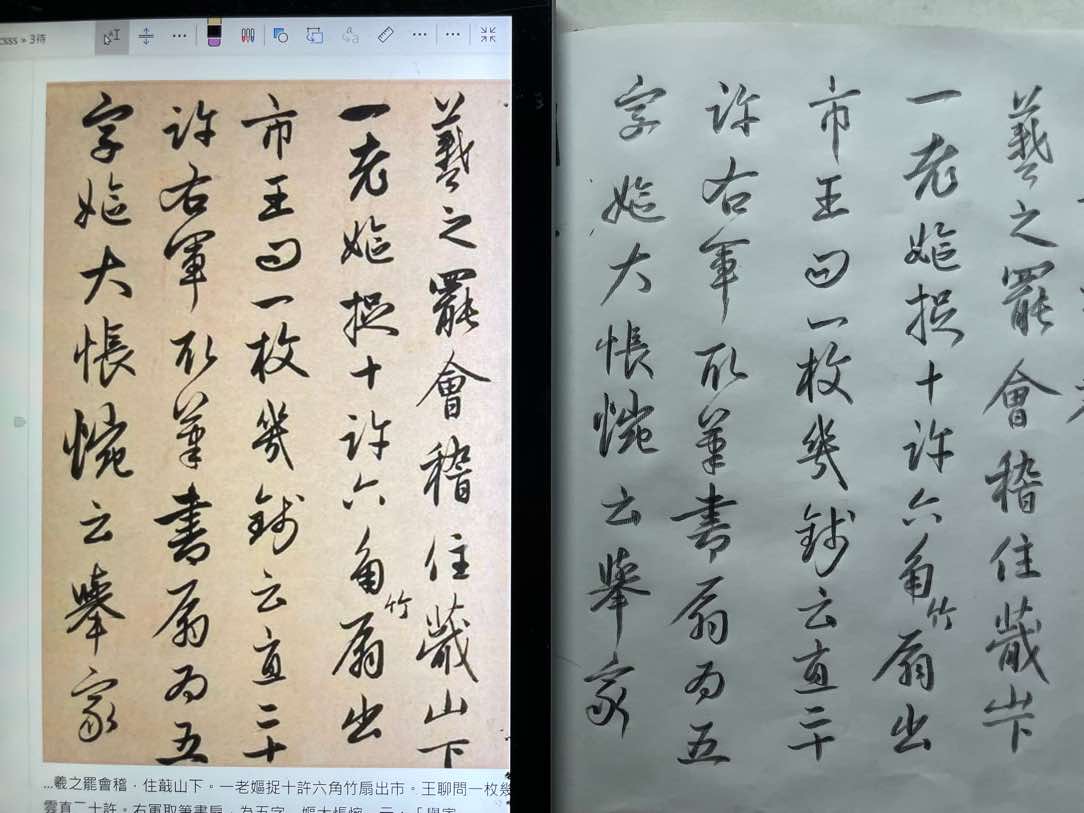 csss » 3待
羲之罷會稽住蕺山下
一老嫗捉十許六角竹扇出
市王問一枚幾錢云直二十
許右軍取筆書扇為五
字嫗大悵惋云舉家
...羲之罷會稽，住蕺山下。一老嫗捉十許六角竹扇出市。王聊問一枚幾
雲直二十許。右軍取筆書扇，為五字，嫗大悵惋，云：「舉家
羲之罷會稽住蕺山下
一老嫗捉十許六角竹扇出
市王問一枚幾錢云直二十
許右軍取筆書扇為五
字嫗大悵惋云舉家